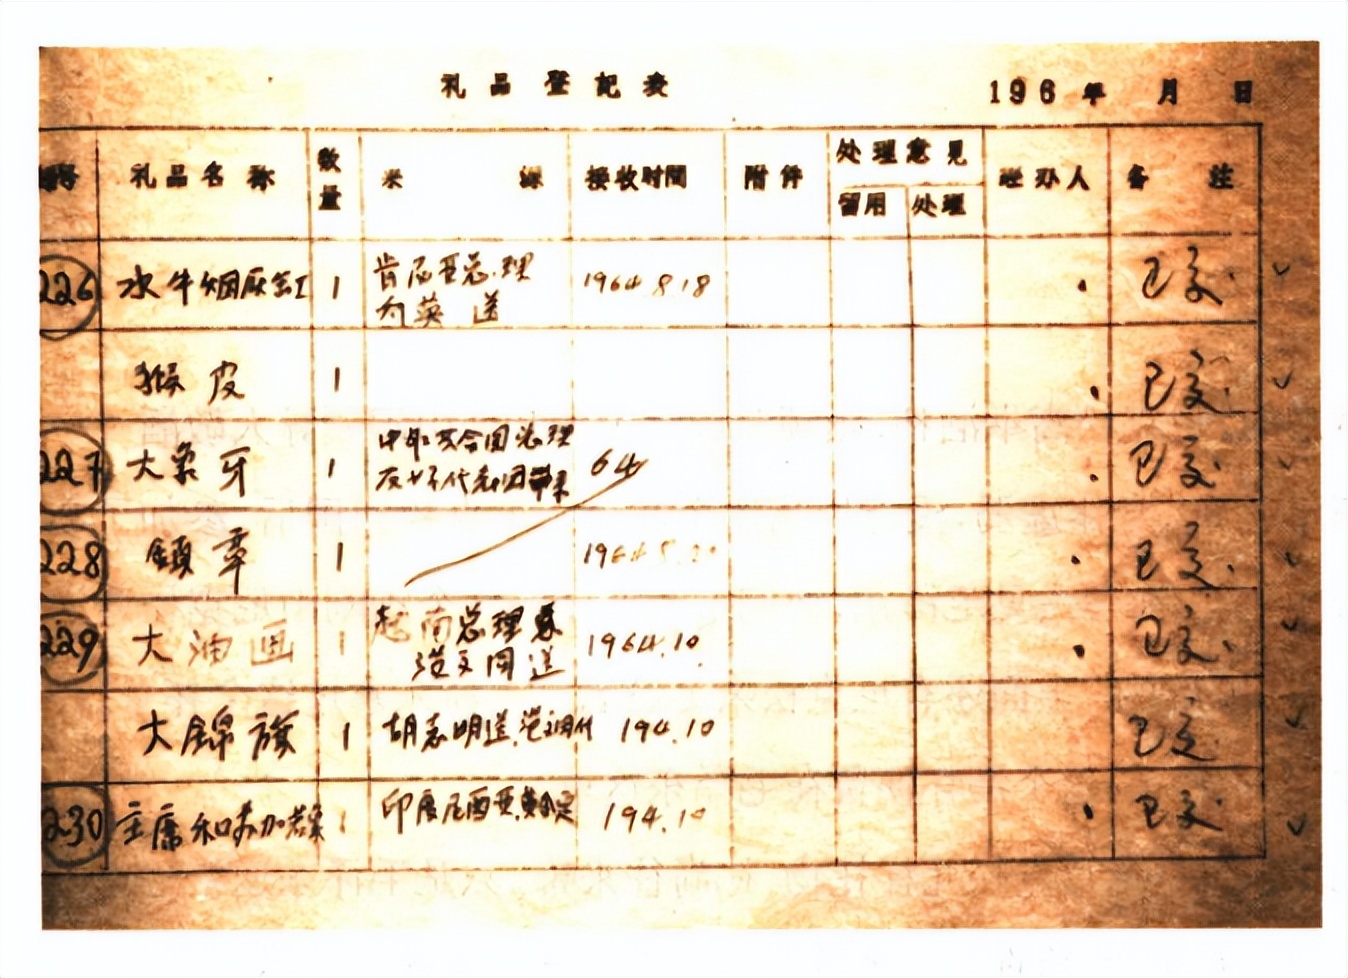 礼品登记表 196 年 月 日
编号 礼品名称 数量 来源 接收时间 附件 处理意见 留用 处理 经办人 备注
226 水牛烟灰缸 1 肯尼亚总理 1964.8.18 已交
送
猴皮 1 已交
227 大象牙 1 总理 64 已交
代表团带来
228 1 已交
229 大油画 1 越南总理 1964.10. 已交
范文同送
大锦旗 1 胡志明送 194.10 已交
230 主席和苏加诺 1 印度尼西亚 194.10 已交